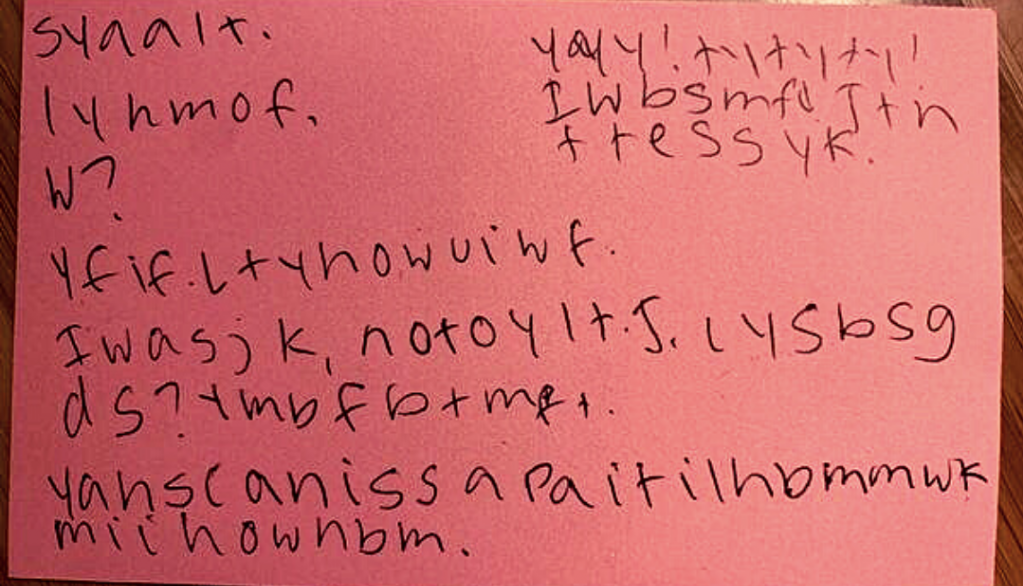 syaalt.
lyhmof.
w?
yfif.ltyhowuiwf.
Iwasjk, notoylt.J. lysbsg
ds? tmbfbtmft.
yahscanissapaitilhbmmwk
miihownbm.
yayy! tytyty!
Iwbsmfl Jtn
ttessyk.